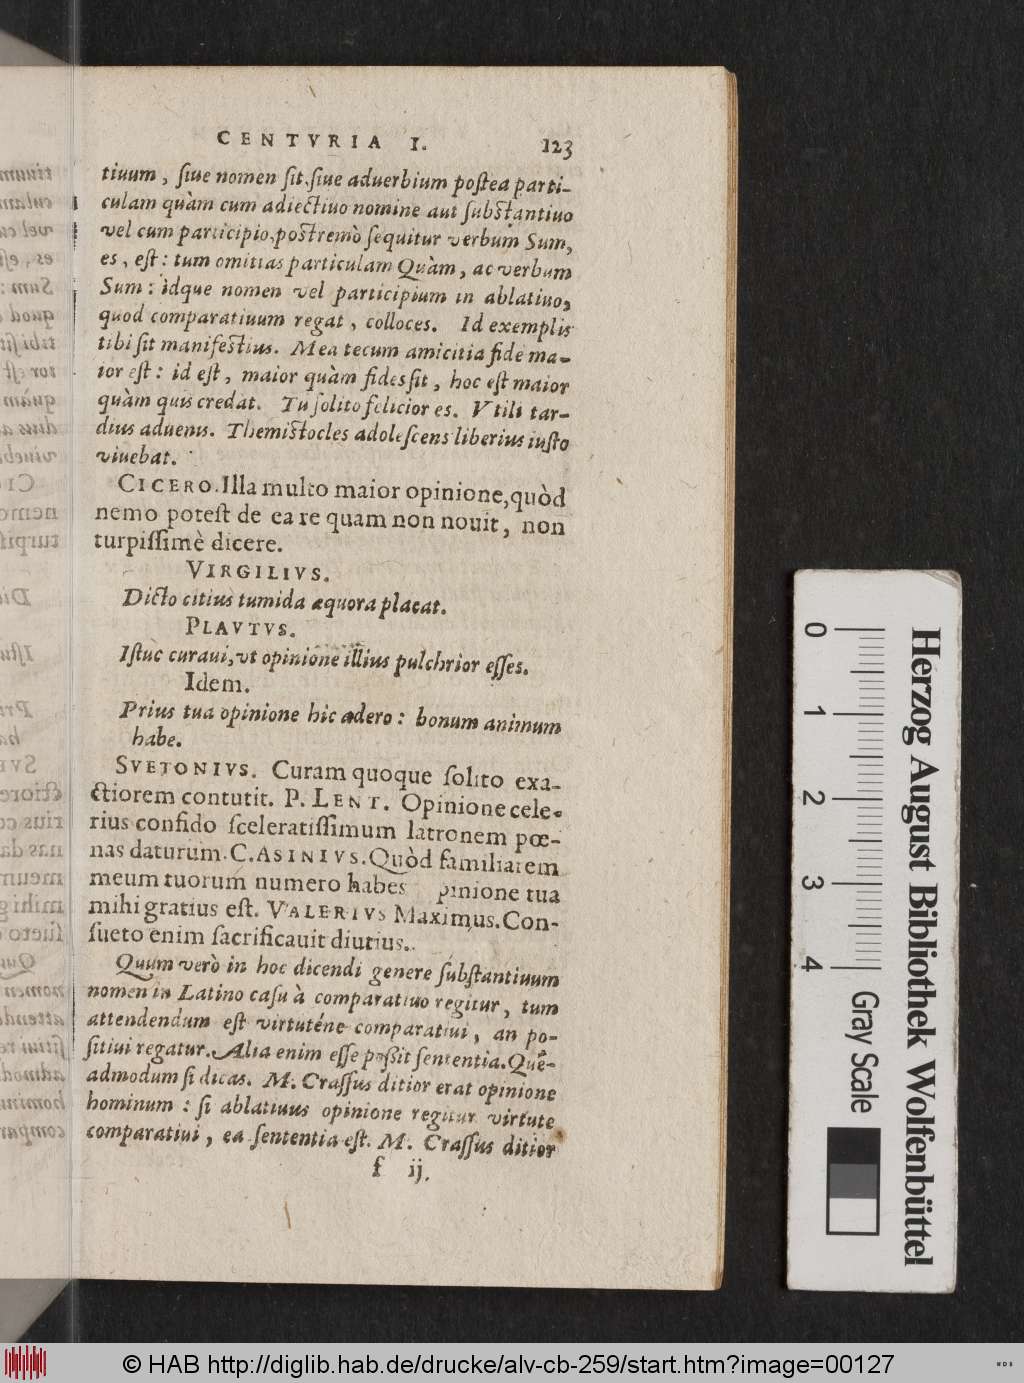 CENTVRIA I. 123
tiuum, ſiue nomen ſit, ſiue aduerbium poſtea parti-
culam quàm cum adiectiuo nomine aut ſubſtantiuo
vel cum participio, poſtremò ſequitur verbum Sum,
es, eſt: tum omittas particulam Quàm, ac verbum
Sum: idque nomen vel participium in ablatiuo,
quod comparatiuum regat, colloces. Id exemplis
tibi ſit manifeſtius. Mea tecum amicitia fide ma-
ior eſt: id eſt, maior quàm fides ſit, hoc eſt maior
quàm quis credat. Tu ſolito felicior es. Vtili tar-
dius aduenis. Themiſtocles adoleſcens liberius iuſto
viuebat.
CICERO. Illa multo maior opinione, quòd
nemo poteſt de ea re quam non nouit, non
turpiſſimè dicere.
VIRGILIVS.
Dicto citius tumida æquora placat.
PLAVTVS.
Iſtuc curaui, vt opinione illius pulchrior eſſes.
Idem.
Prius tua opinione hic adero: bonum animum
habe.
SVETONIVS. Curam quoque ſolito exa-
ctiorem contutit. P. LENT. Opinione cele-
rius confido ſceleratiſſimum latronem pœ-
nas daturum. C. ASINIVS. Quòd familiarem
meum tuorum numero habes pinione tua
mihi gratius eſt. VALERIVS Maximus. Con-
ſueto enim ſacrificauit diutius.
Quum verò in hoc dicendi genere ſubſtantiuum
nomen in Latino caſu à comparatiuo regitur, tum
attendendum eſt virtuténe comparatiui, an po-
ſitiui regatur. Alia enim eſſe poſſit ſententia. Quē-
admodum ſi dicas. M. Craſſus ditior erat opinione
hominum: ſi ablatiuus opinione regitur virtute
comparatiui, ea ſententia eſt. M. Craſſus ditior
f ij.
Herzog August Bibliothek Wolfenbüttel
0 1 2 3 4 Gray Scale
© HAB http://diglib.hab.de/drucke/alv-cb-259/start.htm?image=00127